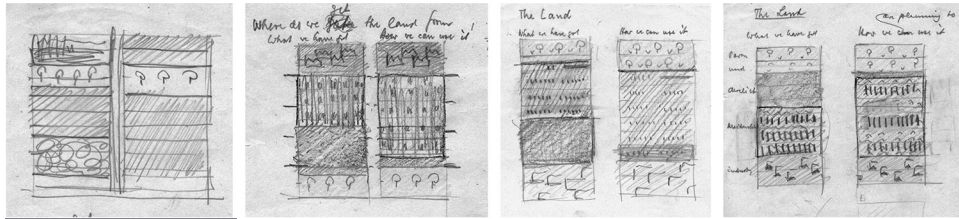 Where do we get the land from?
What we have got
How we can use it!
The Land
What we have got
How we can use it
The Land
planning to
What we have got
How we can use it
Farm
Industry